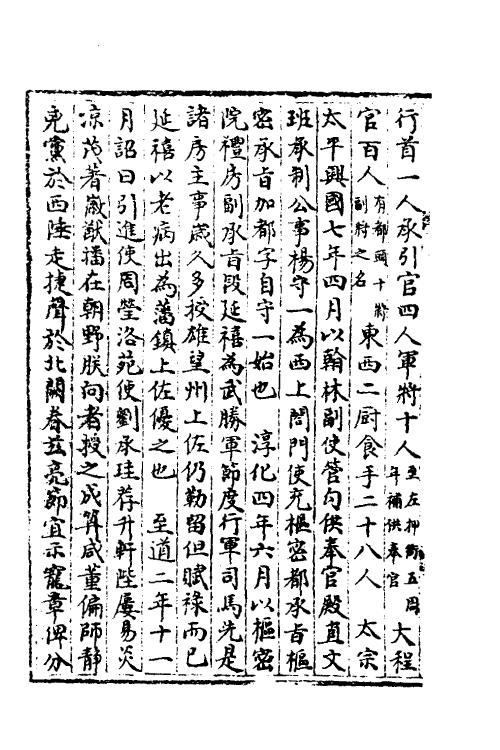 行首一人承引官四人軍將十人至左押衙五周年補供奉官大程
官百人有都頭十將副將之名東西二厨食手二十八人　太宗
太平興國七年四月以翰林副使管勾供奉官殿直文
班承制公事楊守一為西上閤門使充樞密都承旨樞
密承旨加都字自守一始也　淳化四年六月以樞密
院禮房副承旨段延禧為武勝軍節度行軍司馬先是
諸房主事歲久多授雄望州上佐仍勒留但賦祿而已
延禧以老病出為藩鎮上佐優之也　至道二年十一
月詔曰引進使周瑩洛苑使劉承珪荐升軒陛屢易炎
凉茂著徽猷播在朝野朕向者授之成筭咸董偏師静
兇黨於西陲走捷聲於北闕眷茲亮節宜示寵章俾分